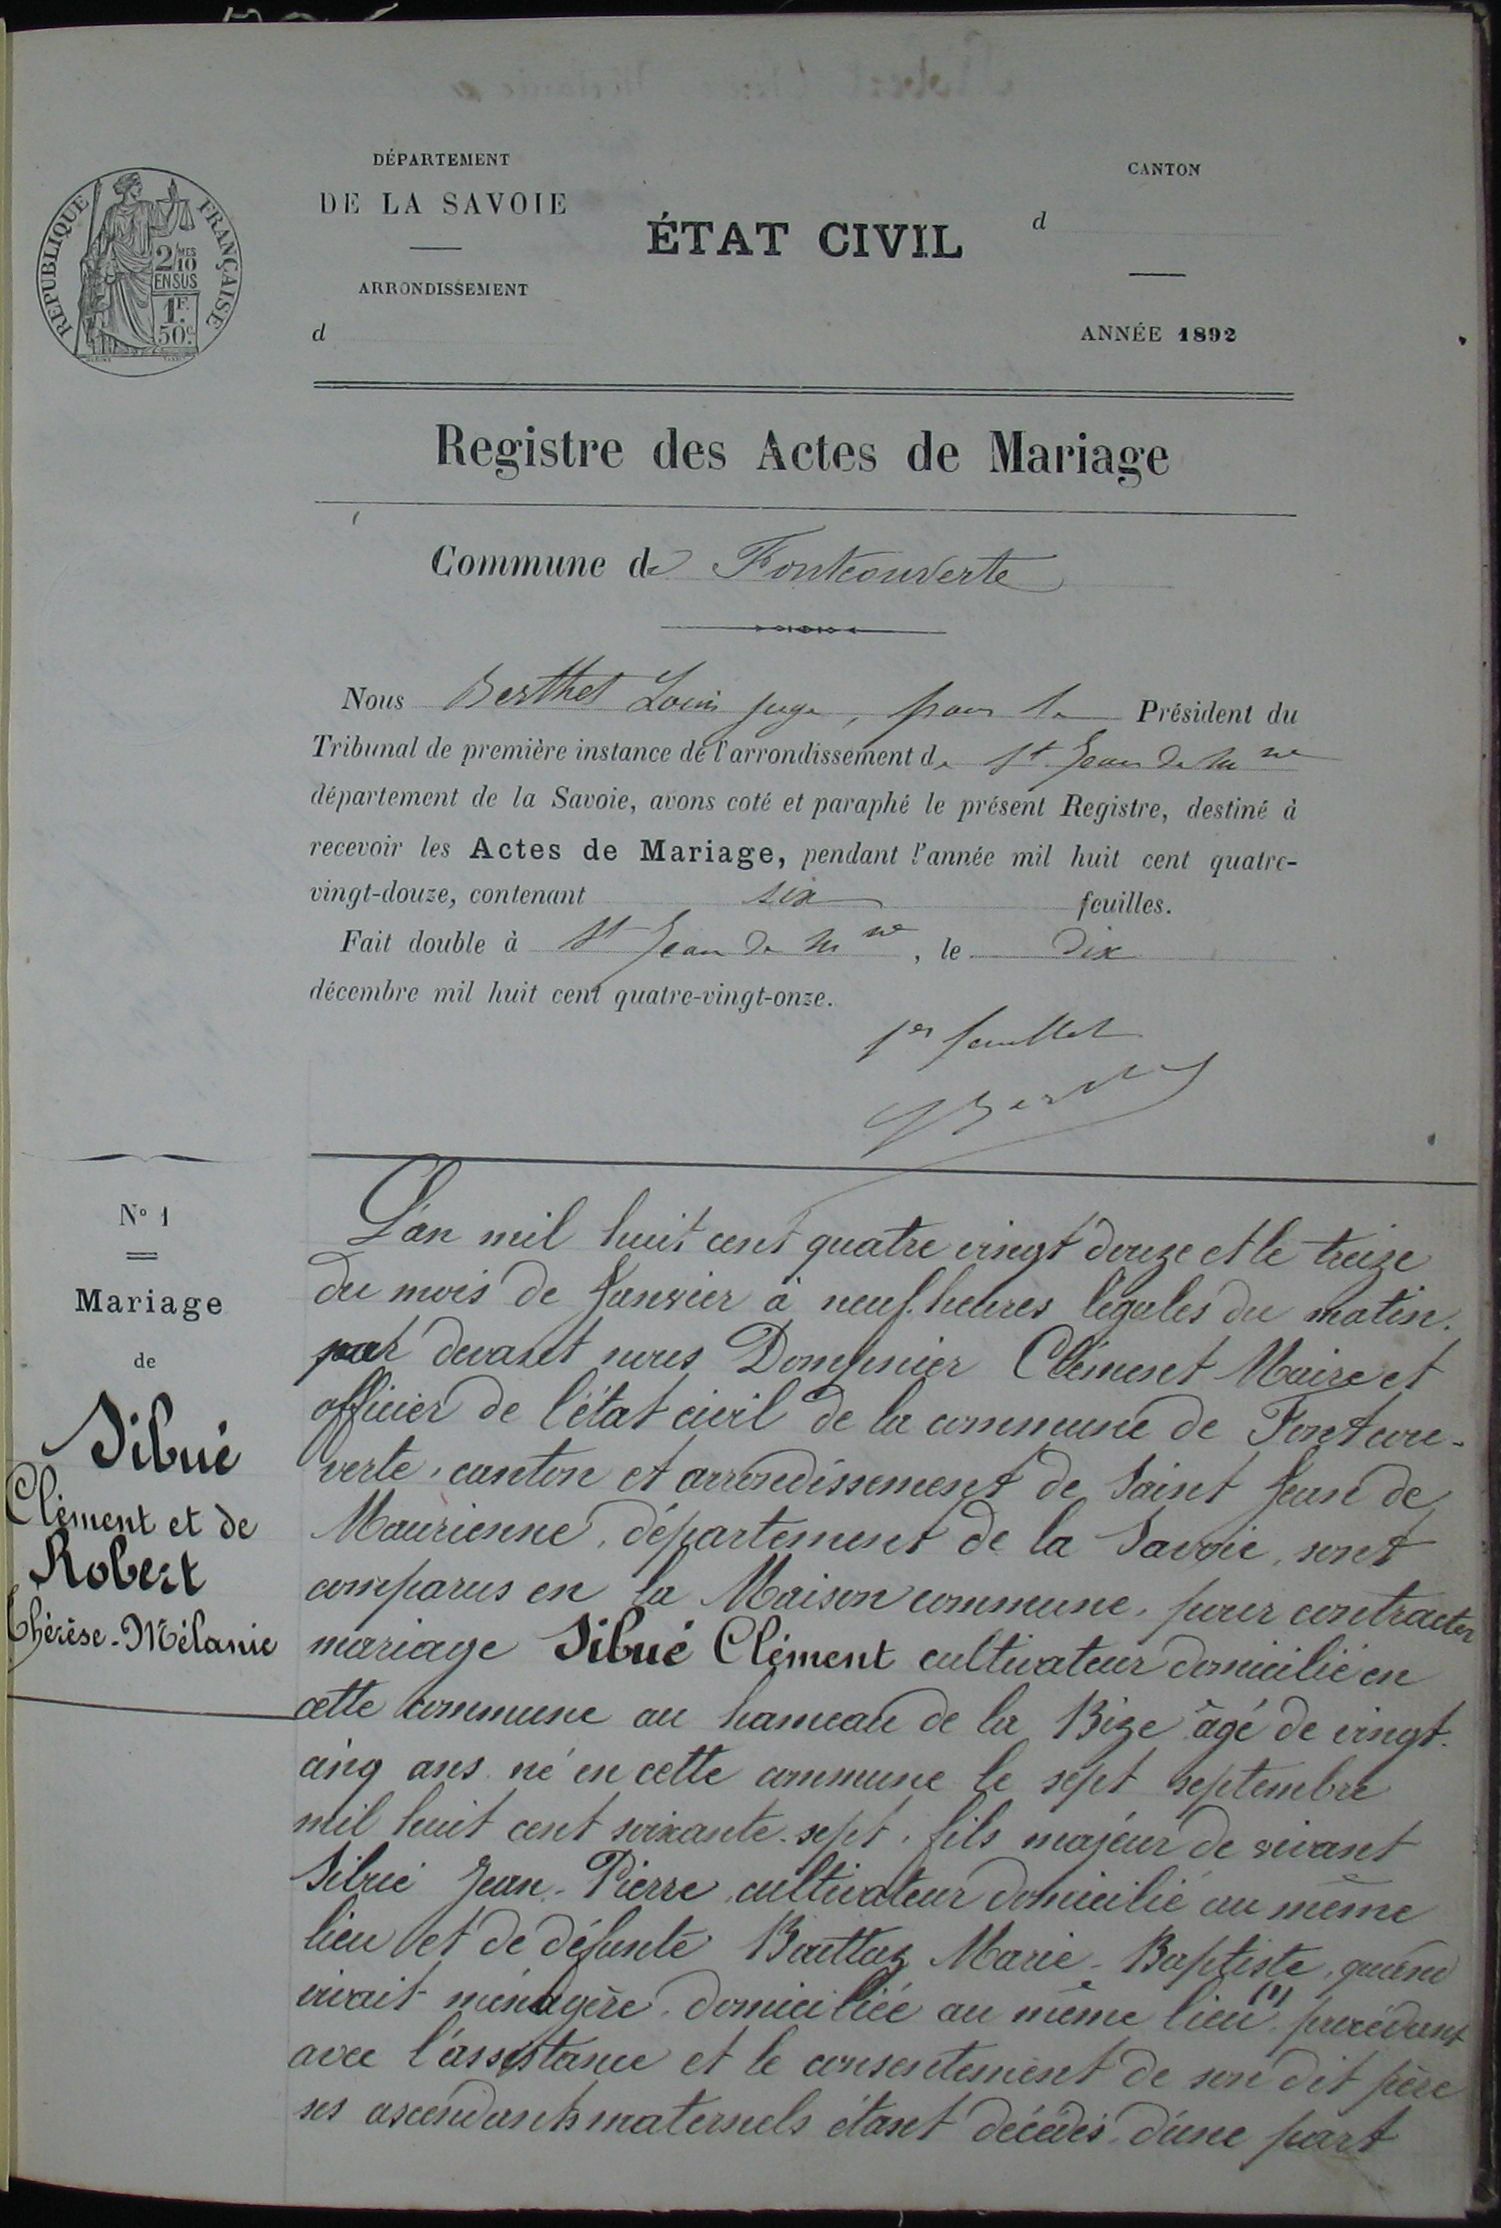 DÉPARTEMENT
DE LA SAVOIE
ARRONDISSEMENT
d
ÉTAT CIVIL
CANTON
d
ANNÉE 1892
RÉPUBLIQUE FRANÇAISE
2/10 MES
EN SUS
1F.
50c.
Registre des Actes de Mariage
Commune de Fontcouverte
Nous Berthet Louis juge, pour le Président du
Tribunal de première instance de l'arrondissement de St Jean de Mne
département de la Savoie, avons coté et paraphé le présent Registre, destiné à
recevoir les Actes de Mariage, pendant l'année mil huit cent quatre-
vingt-douze, contenant six feuilles.
Fait double à St Jean de Mne, le dix
décembre mil huit cent quatre-vingt-onze.
1er feuillet
No 1
Mariage
de
Sibué
Clément et de
Robert
Thérèse-Mélanie
L'an mil huit cent quatre vingt douze et le treize
du mois de Janvier à neuf heures légales du matin.
par devant nous Dompnier Clément Maire et
officier de l'état civil de la commune de Fontcou-
verte, canton et arrondissement de Saint Jean de
Maurienne, département de la Savoie, sont
comparus en la Maison commune, pour contracter
mariage Sibué Clément cultivateur domicilié en
cette commune au hameau de la Bize âgé de vingt-
cinq ans né en cette commune le sept septembre
mil huit cent soixante-sept, fils majeur de vivant
Sibué Jean-Pierre cultivateur domicilié au même
lieu et de défunte Bouttaz Marie-Baptiste, quand
vivait ménagère domiciliée au même lieu (1) procédant
avec l'assistance et le consentement de son dit père
ses ascendants maternels étant décédés, d'une part